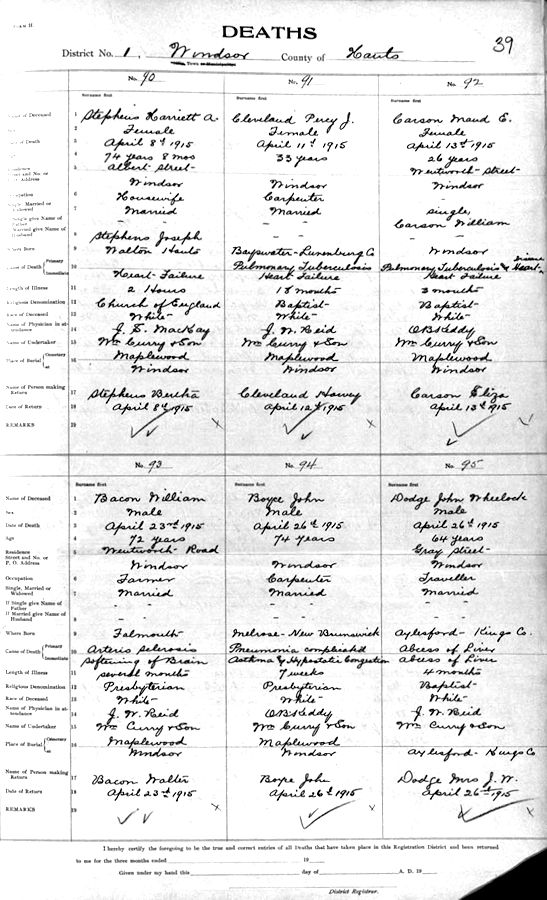 DEATHS
39
District No. 1. Windsor County of Hants
No. 90 No. 91 No. 92
Surname first Surname first Surname first
1 Stephens Harriett A. Cleveland Percy J. Carson Maud E.
2 Female Female Female
3 April 8th 1915 April 11th 1915 April 13th 1915
4 74 years 8 mos 33 years 26 years
5 Albert Street Wentworth Street
Windsor Windsor Windsor
6 Housewife Carpenter -
7 Married Married single
Carson William
8 Stephens Joseph
9 Walton Hants Bayswater Lunenburg Co Windsor
10 Pulmonary Tuberculosis Pulmonary Tuberculosis & Disease Heart
Immediate Heart Failure Heart Failure Heart Failure
Length of Illness 11 2 Hours 18 months 3 months
Religious Denomination 12 Church of England Baptist Baptist
Race of Deceased 13 White White White
Name of Physician in attendance 14 J. S. MacKay J. W. Reid OB Keddy
Name of Undertaker 15 Wm Curry & Son Wm Curry & Son Wm Curry & Son
Place of Burial Cemetery at 16 Maplewood Maplewood Maplewood
Windsor Windsor Windsor
Name of Person making Return 17 Stephens Bertha Cleveland Harvey Carson Eliza
Date of Return 18 April 8th 1915 April 12th 1915 April 13th 1915
REMARKS 19
No. 93 No. 94 No. 95
Surname first Surname first Surname first
Name of Deceased 1 Bacon William Boyce John Dodge John Wheelock
Sex 2 Male Male Male
Date of Death 3 April 23rd 1915 April 26th 1915 April 26th 1915
Age 4 72 years 74 years 64 years
Residence Street and No. or P. O. Address 5 Wentworth Road Gray Street
Windsor Windsor Windsor
Occupation 6 Farmer Carpenter Traveller
Single, Married or Widowed 7 Married Married Married
If Single give Name of Father
If Married give Name of Husband 8
Where Born 9 Falmouth Melrose New Brunswick Aylesford Kings Co.
Cause of Death Primary 10 Arterio sclerosis Pneumonia complicated Abcess of Liver
Immediate Softening of Brain Asthma & Hypostatic Congestion Abcess of Liver
Length of Illness 11 several months 7 weeks 4 months
Religious Denomination 12 Presbyterian Presbyterian Baptist
Race of Deceased 13 White White White
Name of Physician in attendance 14 J. W. Reid OB Keddy J. W. Reid
Name of Undertaker 15 Wm Curry & Son Wm Curry & Son Wm Curry & Son
Place of Burial Cemetery at 16 Maplewood Maplewood
Windsor Windsor Aylesford Kings Co
Name of Person making Return 17 Bacon Walter Boyce John Dodge Mrs J. W.
Date of Return 18 April 23rd 1915 April 26th 1915 April 26th 1915
REMARKS 19
I hereby certify the foregoing to be the true and correct entries of all Deaths that have taken place in this Registration District and been returned
to me for the three months ended 19
Given under my hand this day of A. D. 19
District Registrar.